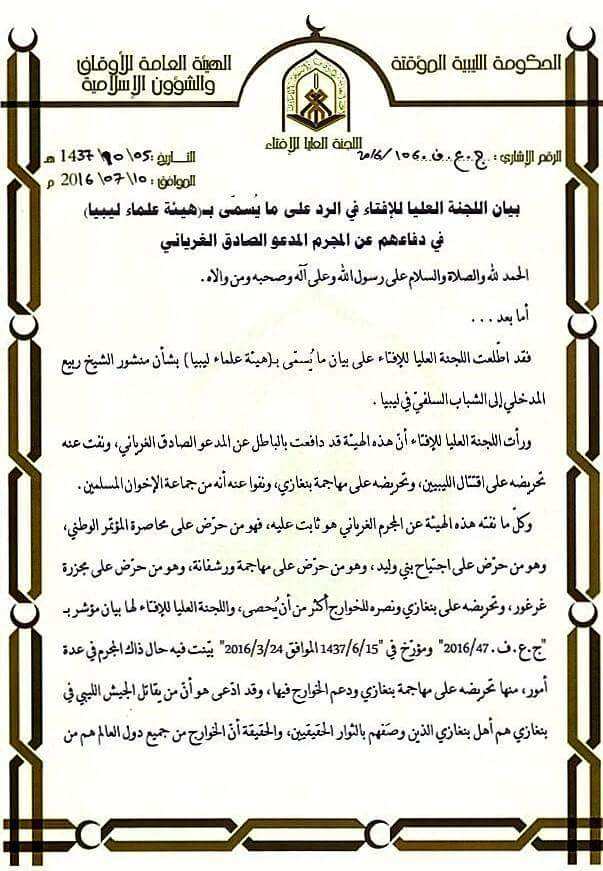 الحكومة الليبية المؤقتة
الهيئة العامة للأوقاف
والشؤون الإسلامية
اللجنة العليا للإفتاء
الرقم الإشاري: ج.ع.ف.106/2016
التاريخ: 05/10/1437 هـ
الموافق: 10/07/2016 م
بيان اللجنة العليا للإفتاء في الرد على ما يُسمّى بـ(هيئة علماء ليبيا)
في دفاعهم عن المجرم المدعو الصادق الغرياني
الحمد لله والصلاة والسلام على رسول الله وعلى آله وصحبه ومن والاه.
أما بعد ...
فقد اطّلعت اللجنة العليا للإفتاء على بيان ما يُسمّى بـ(هيئة علماء ليبيا) بشأن منشور الشيخ ربيع
المدخلي إلى الشباب السلفيّ في ليبيا .
ورأت اللجنة العليا للإفتاء أنّ هذه الهيئة قد دافعت بالباطل عن المدعو الصادق الغرياني، ونفت عنه
تحريضه على اقتتال الليبيين، وتحريضه على مهاجمة بنغازي، ونفوا عنه أنه من جماعة الإخوان المسلمين.
وكلّ ما نفته هذه الهيئة عن المجرم الغرياني هو ثابت عليه، فهو من حرّض على محاصرة المؤتمر الوطني،
وهو من حرّض على اجتياح بني وليد ، وهو من حرّض على مهاجمة ورشفانة، وهو من حرّض على مجزرة
غرغور، وتحريضه على بنغازي ونصره للخوارج أكثر من أن يُحصى، واللجنة العليا للإفتاء لها بيان مؤشر بـ
"ج.ع.ف.47/2016" ومؤرّخ في "1437/6/15 الموافق 2016/3/24" بيّنت فيه حال ذاك المجرم في عدة
أمور، منها تحريضه على مهاجمة بنغازي ودعم الخوارج فيها، وقد ادّعى هو أنّ من يقاتل الجيش الليبي في
بنغازي هم أهل بنغازي الذين وصَفهم بالثوار الحقيقيين، والحقيقة أنّ الخوارج من جميع دول العالم هم من